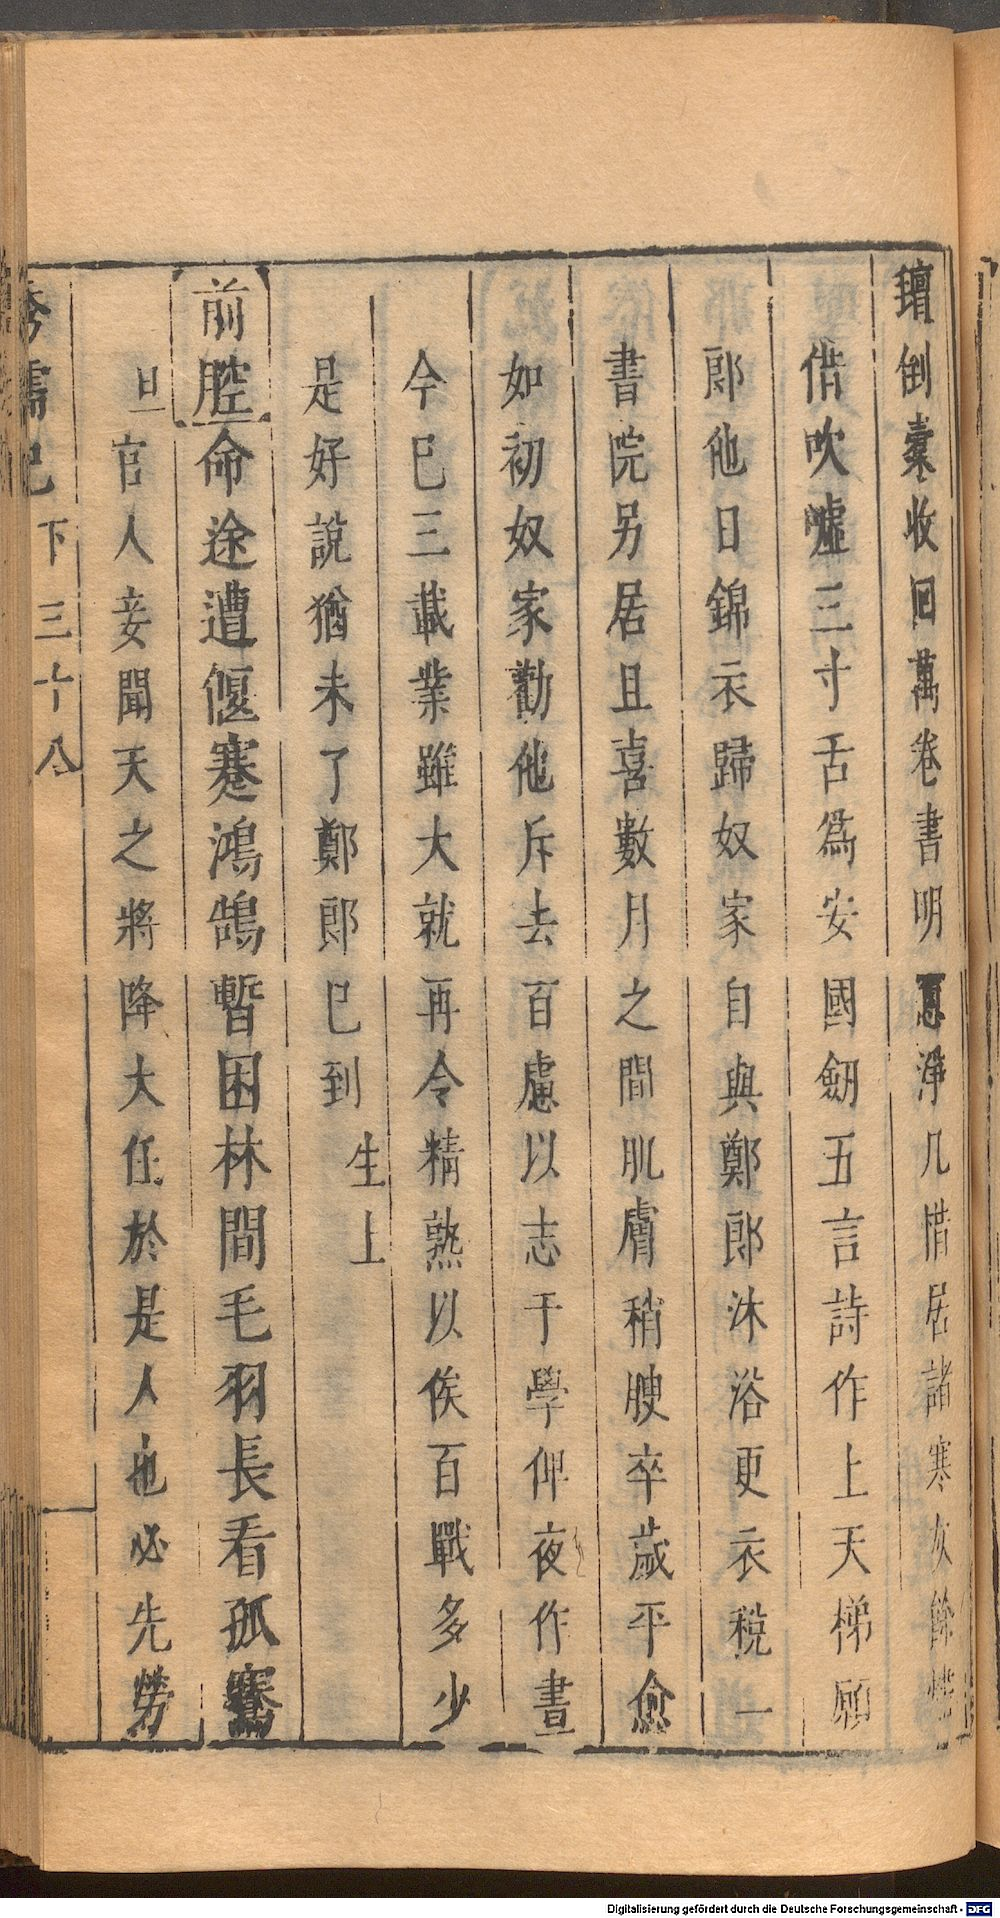 倒橐收回萬卷書明窻淨几惜居諸寒灰餘燼
借吹噓三寸舌爲安國劒五言詩作上天梯願
郎他日錦衣歸奴家自與鄭郎沐浴更衣稅一
書院另居且喜數月之間肌膚稍腴卒歲平愈
如初奴家勸他斥去百慮以志于學俾夜作晝
今巳三載業雖大就再令精熟以俟百戰多少
是好說猶未了鄭郎巳到生上
前腔命途遭偃蹇鴻鵠暫困林間毛羽長看孤騫
旦官人妾聞天之將降大任於是人也必先勞
襦記下三十八
Digitalisierung gefördert durch die Deutsche Forschungsgemeinschaft - DFG